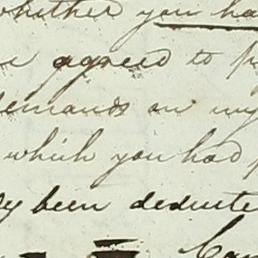 whether you ha
agreed to p
demands on my
which you had p
dy been deducte
Can